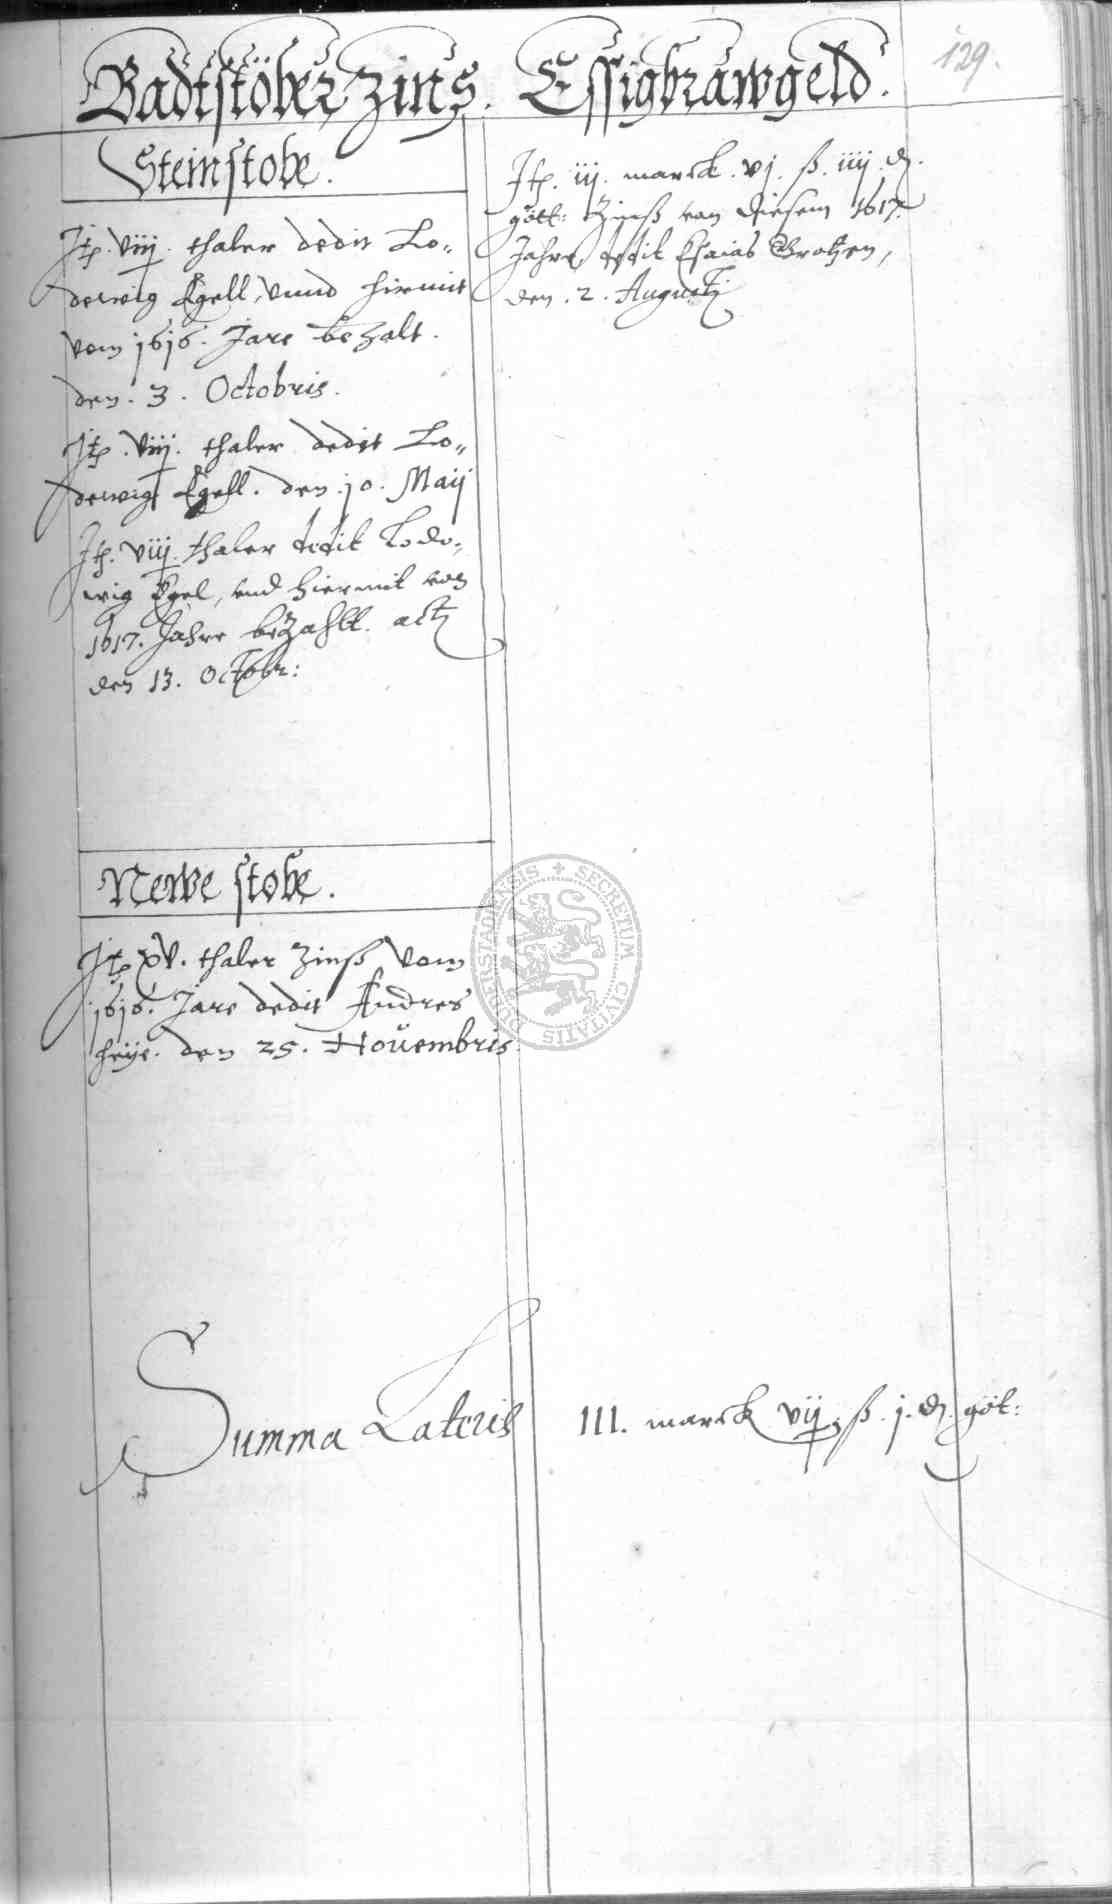 129.
Badtstöber Zins.
Steinstobe.
Itp. viij. thaler dedit Lo-
dewig Egell, vnnd hirmit
vom 1616. Jare bezalt.
den. 3. Octobris.
Itp. viij. thaler dedit Lo-
dewig Egell. den. 10. Maij
Itp. viij. thaler dedit Lodo-
wig Egel, vnd hiermit von
1617. Jahre bezahlt. act
den 13. Octobr:
Newe stobe.
Itp xv. thaler Zinß vom
1616. Jare dedit Andres
heÿe. den 25. Nouembris
Essigbrawgeld.
Itp. iij. marck. vj. ß. iiij. d.
gött: Zinß von diesem 1617.
Jahre dedit Esaias Grotzen,
den. 2. Augusti
DUDERSTADIENSIS + SECRETUM CIVITATIS
Summa Lateris III. marck vij ß. j. d. göt: